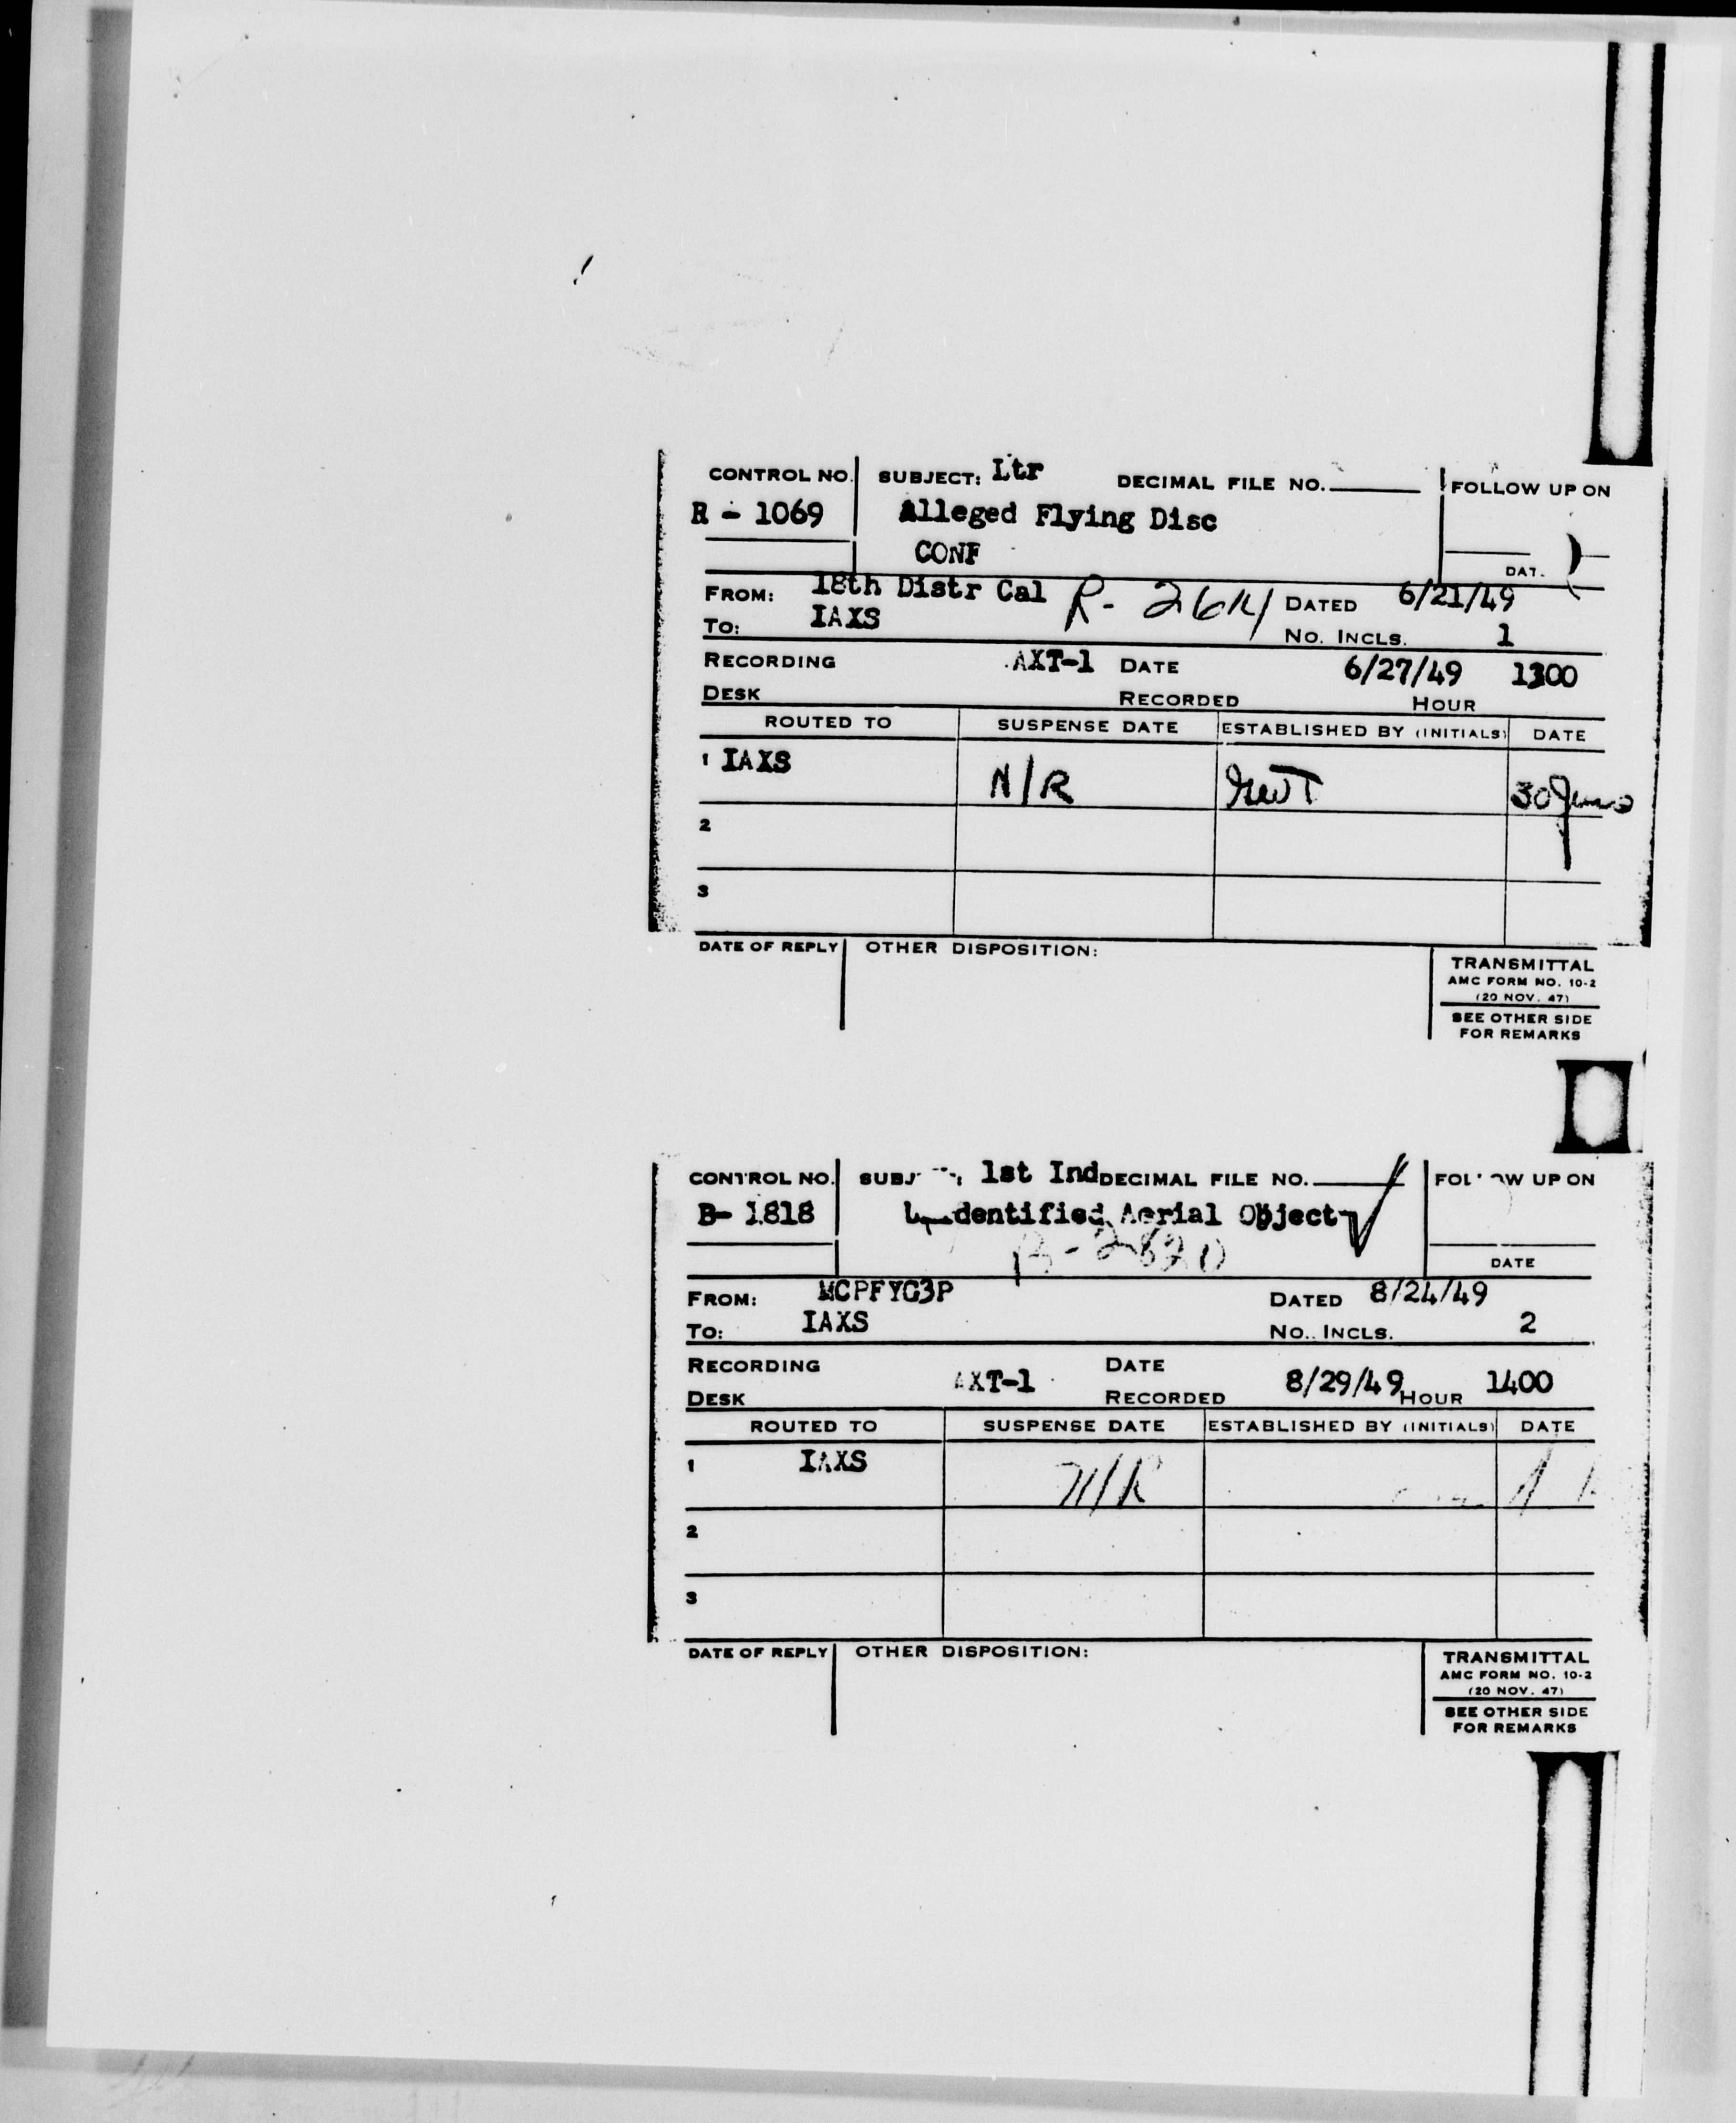 CONTROL NO. SUBJECT: Ltr DECIMAL FILE NO. FOLLOW UP ON
R - 1069 Alleged Flying Disc
CONF
DAT.
FROM: 18th Distr Cal R- 2614 DATED 6/21/49
TO: IAXS NO. INCLS. 1
RECORDING AXT-1 DATE 6/27/49 1300
DESK RECORDED HOUR
ROUTED TO SUSPENSE DATE ESTABLISHED BY (INITIALS) DATE
1 IAXS N/R 30 June
2
3
DATE OF REPLY OTHER DISPOSITION:
TRANSMITTAL
AMC FORM NO. 10-2
(20 NOV. 47)
SEE OTHER SIDE
FOR REMARKS
CONTROL NO. SUBJ 1st Ind DECIMAL FILE NO. UP ON
B- 1818 Aerial Object
B-2820
DATE
FROM: MCPFYG3P DATED 8/24/49
TO: IAXS NO. INCLS. 2
RECORDING DATE
DESK AXT-1 RECORDED 8/29/49 HOUR 1400
ROUTED TO SUSPENSE DATE ESTABLISHED BY (INITIALS) DATE
1 IAXS N/R
2
3
DATE OF REPLY OTHER DISPOSITION:
TRANSMITTAL
AMC FORM NO. 10-2
(20 NOV. 47)
SEE OTHER SIDE
FOR REMARKS